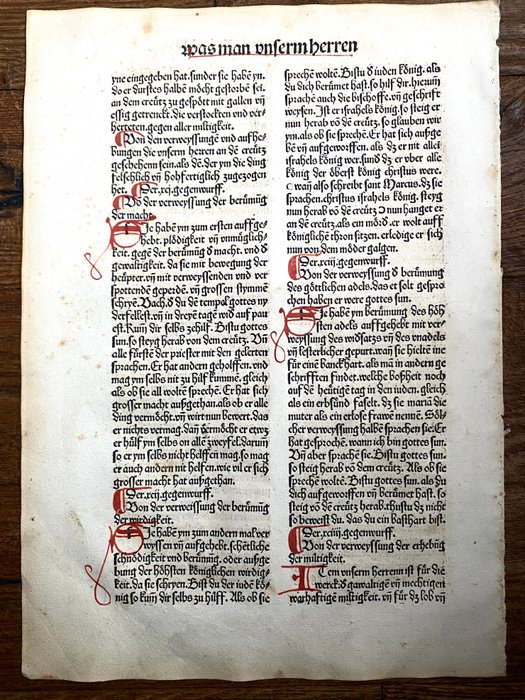 was man vnserm herren
yne eingegeben hat. sunder sie habē yn.
do er durstes halbē möcht gestorbē sei.
an dem creütz zu gespött mit gallen vñ
essig getrenckt. die verstockten vnd ver
herteten. gegen aller miltigkeit.
Von den verweyssunge vnd aufhe-
bungen die vnsern herren an dē creütz
geschehenn sein. als dē. der ym die ding
felschlich vñ hohfertiglich zugezogen
het. Der.xcj.gegenwurff.
Vō der verweyssung der berümūg
der macht.
Sie habē ym zum ersten auffge-
hebt. plödigkeit vñ vnmüglich-
keit. gegē der berümūg ď macht. vnd ď
gewaltigkeit. da sie mit bewegung der
heüpter. vñ mit verweyssenden vnd ver
spottendē geperdē. vñ grossen stymmē
schryē. Vach. ď du dē tempel gottes ny
derfellest. vñ in dreyē tagē wid auf pau
est. kum dir selbs zehilf. Bistu gottes
sun. so steyg herab von dem creütz. Vñ
alle fürstē der priester mit den gelerten
sprachen. Er hat andern geholffen. vnd
mag ym selbs nit zu hilf kumme. gleich
als ob sie all woltē sprechē. Er hat sich
grosser macht aufgethan. als ob er alle
ding vermöcht. vñ wirt nun bewert. das
er nichts vermag. dan vermöcht er etwz
er hülf ym selbs on allē zweyfel. darum
so er ym selbs nicht helffen mag. so mag
er auch andern nit helfen. wie vil er sich
grosser macht hat aufgethan.
Der.xcij.gegenwurff.
Von der verweissung der berümūg
der wirdigkeit.
Sie habē ym zum andern mal ver
wyssen vñ aufgehebt. schētliche
schnödigkeit vnd berümūg. oder aufge
bung der höhsten königlichen wirdig-
keit. da sie schryen. Bist du der iudē kö-
nig so kum dir selbs zu hülff. Als ob sie
sprechē woltē. Bistu ď iuden könig. als
du dich berümet hast. so hilf dir. hierum
sprachē auch die bischoffe. vñ geschrift
weysen. Ist er israhels könig. so steig er
nun herab vō dē creütz. so glauben wir
ym. als ob sie sprechē. Er hat sich aufge
bē vñ aufgeworffen. als dz er mit allei
israhels könig wer. sund dz er vber alle
könig der öberst könig christus were.
wañ also schreibt sant Marcus. dz sie
sprachen. christus israhels könig. steyg
nun herab vō dem creütz. Dnun hanget er
an dē creütz. als ein mörd. er wolt auff
königliche thron sitzen. erledige er sich
nun von dem mörder galgen.
Der.xciij.gegenwurff.
Von der verweyssung ď berümung
des götlichen adels. das et solt gespro
chen haben er were gottes sun.
Sie habē ym berümung des höh
sten adels auffgehebt mit ver-
weyssung des widsatzs vñ des vnadels
vñ lesterlicher gepurt. wan sie hieltē ine
für einē banckhart. als mā in andern ge
schrifften findet. welche boßheit noch
auf dē heütigē tag in den iuden. gleich
als ein erbsünd faselt. dz sie maria die
muter als ein erlose frawē nennē. Söl-
cher verweyssung halbē sprachen sie. Er
hat gesprochē. wann ich bin gottes sun.
Vñ aber sprachē sie. Bistu gottes sun.
so steig herab vō dem creütz. Als ob sie
sprechē woltē. Bistu gottes sun. als du
dich auf geworffen vñ berümet hast. so
steig vō dē creütz herab. thustu dz nicht
so beweist du. das du ein basthart bist.
Der.xciiij.gegenwurff.
Von der verweyssung der erhebūg
der miltigkeit.
Item vnserm herrenn ist für die
werck ď gawaltigē vñ mechtigen
warhaftigē miltigkeit. vñ für dz lob vñ